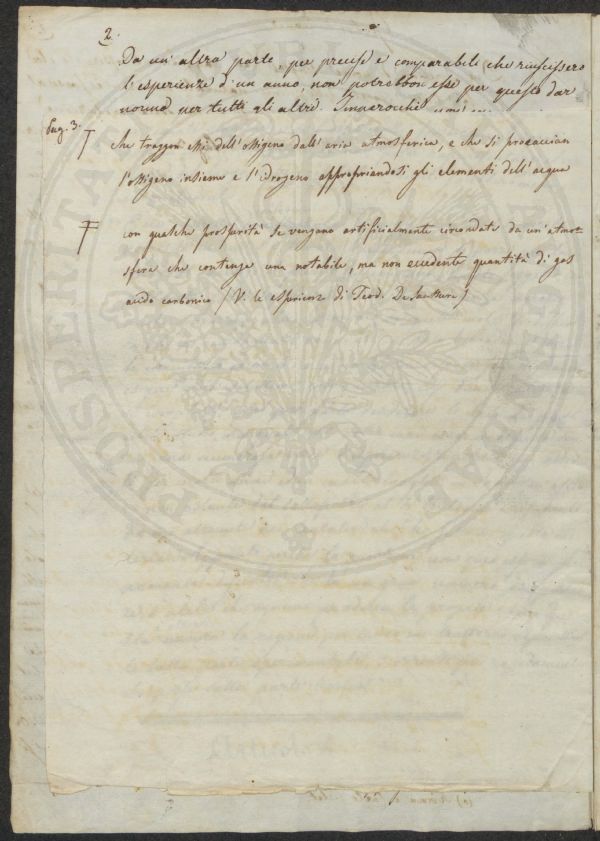 2.
Da un' altra parte, per precise e comparabili che riuscissero
l'esperienze d'un anno, non potrebbon esse per questo dar
norma per tutti gli altri. Imperocchè
Pag. 3.
che traggon essi dell'ossigeno dall'aria atmosferica, e che si procaccian
l'ossigeno insieme e l'idrogeno appropriandosi gli elementi dell'acqua
con qualche prosperità se vengano artificialmente circondate da un'atmo-
sfera che contenga una notabile, ma non eccedente quantità di gas
acido carbonico (V. le esperienze di Teod. De Saussure)
PROSPERITATI AUGENDAE